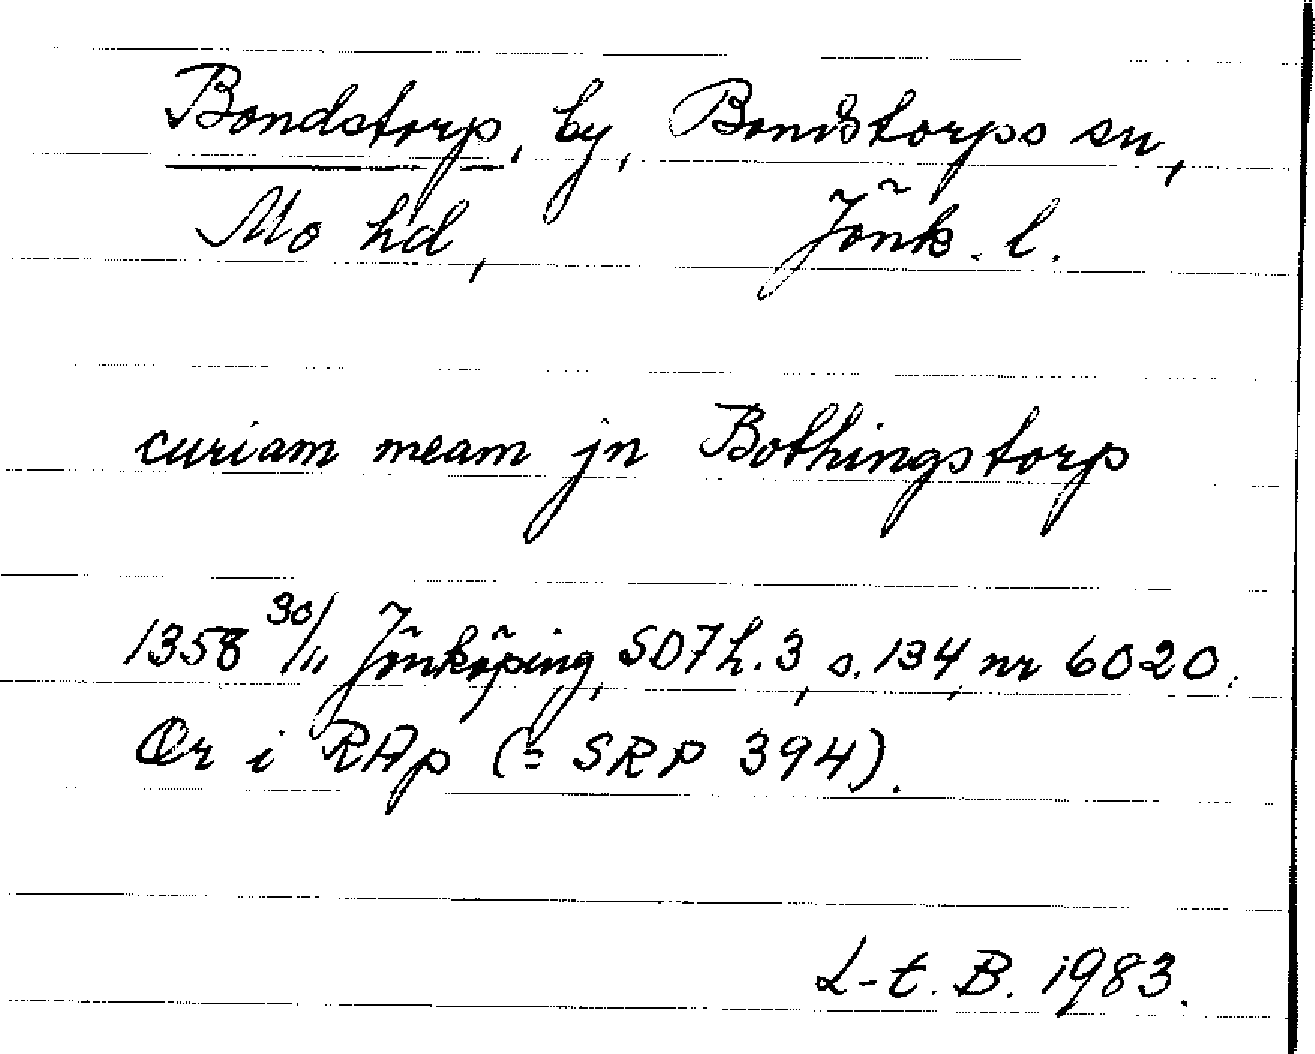 Bondstorp, by, Bondstorps sn,
Mo hd, Jönk. l.
curiam meam jn Bothingstorp
1358 30/11 Jönköping, SD7h.3, s.134, nr 6020.
Or i RAp (= SRP 394).
L-t. B. 1983.